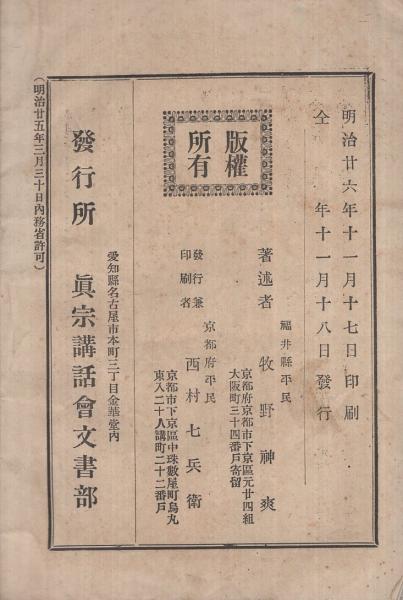 明治廿六年十一月十七日印刷
仝　　年十一月十八日發行
版權
所有
著述者
福井縣平民
牧野神爽
京都府京都市下京區元廿四組
大阪町三十四番戸寄留
發行兼
印刷者
京都府平民
西村七兵衛
京都市下京區中珠數屋町烏丸
東入二十人講町二十二番戸
愛知縣名古屋市本町三丁目金華堂内
發行所　眞宗講話會文書部
（明治廿五年三月三十日内務省許可）